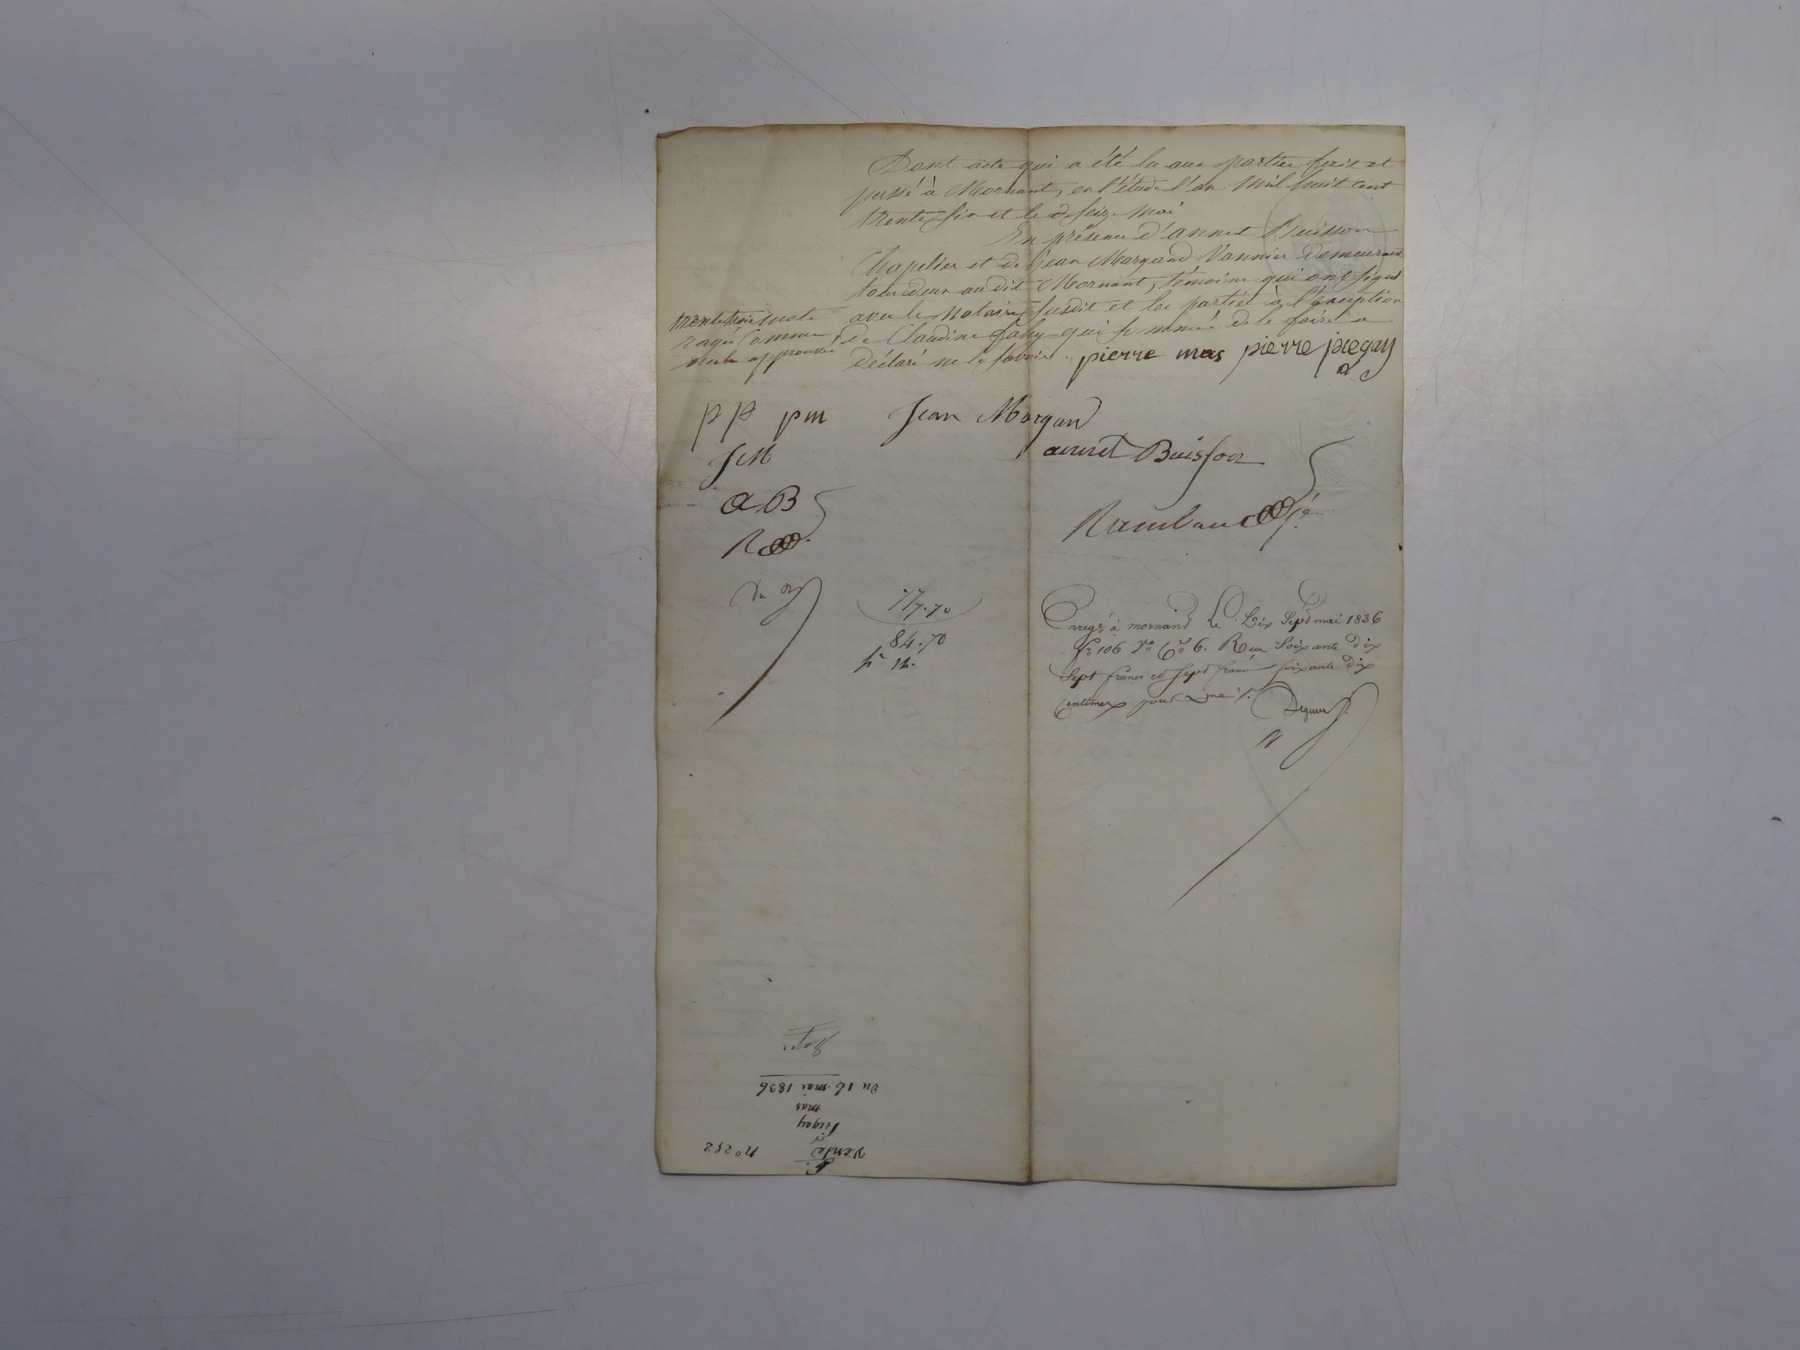 Dont acte qui a été lu aux parties fait et
passé à Mornant, en l'étude l'an mil huit cent
trente six et le seize mai
En présence d'annet Buisson
Chapelier et de Jean Margand Vannier demeurant
tous deux au dit Mornant, témoins qui ont signé
avec le notaire susdit et les parties à l'exception
de Claudine qui de le faire a
déclaré ne le savoir. pierre mas pierre piegay
trente trois mots
rayés comme
nuls approuvés
pp pm
Jean Morgand
JM
annet Buisson
AB
R
Rambaud
77.70
84.70
Enregé à mornand le Dix Sept mai 1836
fo 106 Vo Ces 6. Reçu Soixante dix
Sept francs et sept francs soixante dix
centimes pour
Du 16 mai 1836
mas
Piegay
à
Vente
no 252